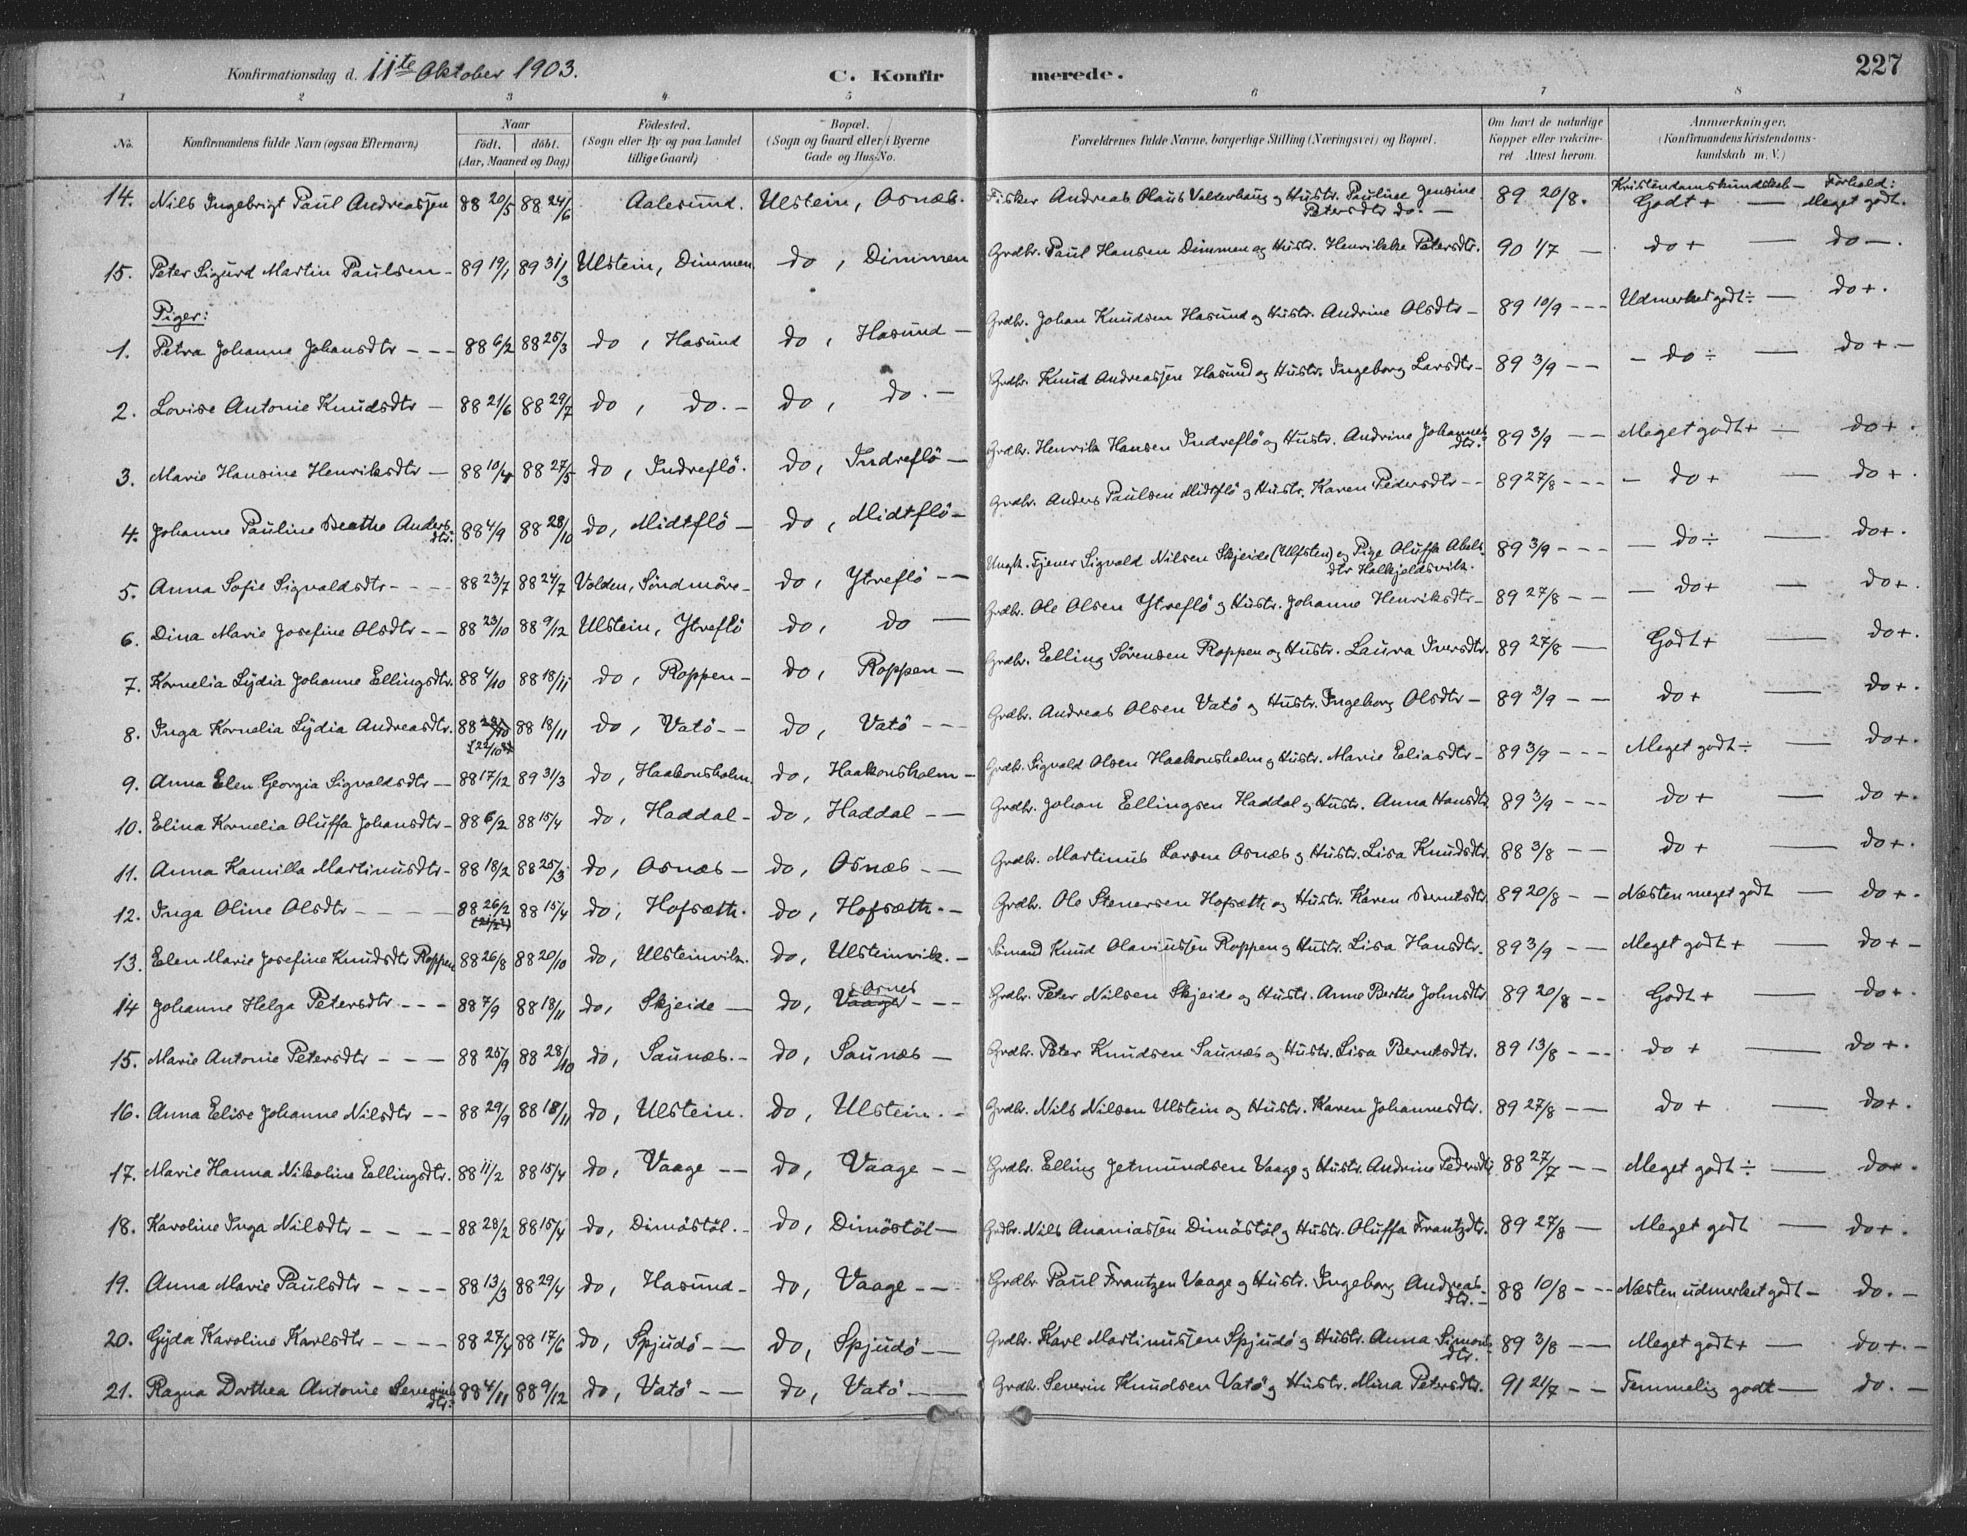 Konfirmationsdag d. 11te Oktober 1903. C. Konfirmerede. 227
1 2 3 4 5 6 7 8
No. Konfirmandens fulde Navn (ogsaa Efternavn) Naar födt. döbt. (Aar, Maaned og Dag) Födested. (Sogn eller By og paa Landet tillige Gaard) Bopæl. (Sogn og Gaard eller i Byerne Gade og Hus-No. Forældrenes fulde Navne, borgerlige Stilling (Næringsvei) og Bopæl. Om havt de naturlige Kopper eller vakcineret Attest herom. Anmærkninger. (Konfirmandens Kristendomskundskab m. V.)
Kristendomskundskab — Forhold:
14. Nils Ingebrigt Paul Andreassen 88 20/5 88 24/6 Aalesund. Ulstein, Osnæs. Fisker Andreas Olaus Valderhaug og Hustr. Pauline Jensine Petersdtr do. — 89 20/8. Godt + — Meget godt.
15. Peter Sigurd Martin Paulsen — 89 19/1 89 31/3 Ulstein, Dimmen do, Dimmen Grdbr. Paul Hansen Dimmen og Hustr. Henrikke Petersdtr. 90 1/7 — do + — do —.
Piger:
1. Petra Johanne Johansdtr — — — 88 6/2 88 25/3 do, Hasund do, Hasund — Grdbr. Johan Knudsen Hasund og Hustr. Andrine Olsdtr — 89 10/9 — — — Udmerket godt ÷ — do +.
2. Lovise Antonie Knudsdtr — 88 21/6 88 29/7 do, do. — do, do. — Grdbr. Knud Andreassen Hasund og Hustr. Ingeborg Larsdtr — 89 3/9 — — — do ÷ — do + —
3. Marie Hansine Henriksdtr — 88 10/4 88 27/5 do, Indreflö. do, Indreflö — Grdbr. Henrik Hansen Indreflö og Hustr. Andrine Johannesdtr. 89 3/9 — — Meget godt + — do +.
4. Johanne Pauline Berthe Andersdtr. 88 4/9 88 28/10 do, Midtflö — do, Midtflö — Grdbr. Anders Paulsen Midtflö og Hustr. Karen Pedersdtr — — 89 27/8 — — — — do + — do +.
5. Anna Sofie Sigvaldsdtr — — — — 88 23/7 88 24/7 Volden, Söndmöre — do, Ytreflö — — Ungk. Tjener Sigvald Nilsen Skjeide (Ulfsten) og Pige Oluffa Abelsdtr Halkjeldsvik. 89 3/9 — — — — do ÷ — do +.
6. Dina Marie Josefine Olsdtr — — 88 23/10 88 9/12 Ulstein, Ytreflö do, do — Grdbr. Ole Olsen Ytreflö og Hustr. Johanne Henriksdtr — 89 27/8 — — — do + — do +.
7. Kornelia Lydia Johanne Ellingsdtr. 88 4/10 88 18/11 do, Roppen — do, Roppen — Grdbr. Elling Sörensen Roppen og Hustr. Laura Iversdtr. 89 27/8 — Godt + — do +.
8. Inga Kornelia Lydia Andreasdtr. 88 88 18/11 do, Vatö — — do, Vatö — — — Grdbr. Andreas Olsen Vatö og Hustr. Ingeborg Olsdtr — 89 3/9 — — do + — do +.
9. Anna Elen Georgia Sigvaldsdtr — — 88 17/12 89 31/3 do, Haakonsholm. do, Haakonsholm — Grdbr. Sigvald Olsen Haakonsholm og Hustr. Marie Eliasdtr — 89 3/9 — — — Meget godt ÷ — do +.
10. Elina Kornelia Oluffa Johansdtr — 88 6/2 88 15/4 do, Haddal — do, Haddal — — Grdbr. Johan Ellingsen Haddal og Hustr. Anna Hansdtr 89 3/9 — — — do + — do +.
11. Anna Kamilla Martinusdtr — 88 18/2 88 25/3 do, Osnæs — do, Osnæs — — Grdbr. Martinus Larsen Osnæs og Hustr. Lisa Knudsdtr. 88 3/8 — — do + — do +.
12. Inga Oline Olsdtr — — — — 88 26/2 88 15/4 do, Hofsæth. do, Hofsæth. — Grdbr. Ole Stenersen Hofsæth og Hustr. Karen Berntsdtr. 89 20/8 — — Næsten meget godt — do +.
13. Elen Marie Josefine Knudsdtr Roppen 88 26/8 88 20/10 do, Ulsteinvik. do, Ulsteinvik. — Sömand Knud Olaviussen Roppen og Hustr. Lisa Hansdtr. 89 3/9 — — Meget godt + — do + —
14 Johanne Helga Petersdtr — — — 88 7/9 88 18/11 do, Skjeide — do, Vaage Osnes — — Grdbr. Peter Nilsen Skjeide og Hustr. Anne Berthe Johnsdtr. 89 20/8 — — Godt + — do +.
15. Marie Antonie Petersdtr — — — 88 25/9 88 28/10 do, Saunæs. — do, Saunæs — Grdbr. Peter Knudsen Saunæs og Hustr. Lisa Berntsdtr. 89 13/8 — — — do + — do +.
16. Anna Elise Johanne Nilsdtr — — 88 29/9 88 18/11 do, Ulstein. do, Ulstein. — Grdbr. Nils Nilsen Ulstein og Hustr. Karen Johannesdtr. 89 27/8 — — do + — do +.
17. Marie Hanna Nikoline Ellingsdtr. 88 11/2 88 15/4 do, Vaage — — do, Vaage — — Grdbr. Elling Jetmundsen Vaage og Hustr. Andrine Pedersdtr. 88 27/7 — — Meget godt ÷ — do +.
18. Karoline Inga Nilsdtr — — — — 88 28/2 88 15/4 do, Dimöstöl. — do, Dimöstöl — Grdbr. Nils Ananiassen Dimöstöl og Hustr. Oluffa Frantzdtr. 89 27/8 — Meget godt — do +.
19. Anna Marie Paulsdtr — — — — 88 13/3 88 29/4 do, Hasund — do, Vaage — — Grdbr. Paul Frantzen Vaage og Hustr. Ingeborg Andreasdtr. — 88 10/8 — — Næsten udmerket godt — do. —
20. Gyda Karoline Karlsdtr — — — — 88 27/4 88 17/6 do, Spjudö — — do, Spjudö — — Grdbr. Karl Martinussen Spjudö og Hustr. Anna Simonsdtr. 89 3/8 — — Meget godt + — do +. —
21. Ragna Dorthea Antonie Severinsdtr. 88 4/11 88 9/12 do, Vatö — — do, Vatö — — Grdbr. Severin Knudsen Vatö og Hustr. Mina Petersdtr. 91 21/7 — — Temmelig godt — do. —